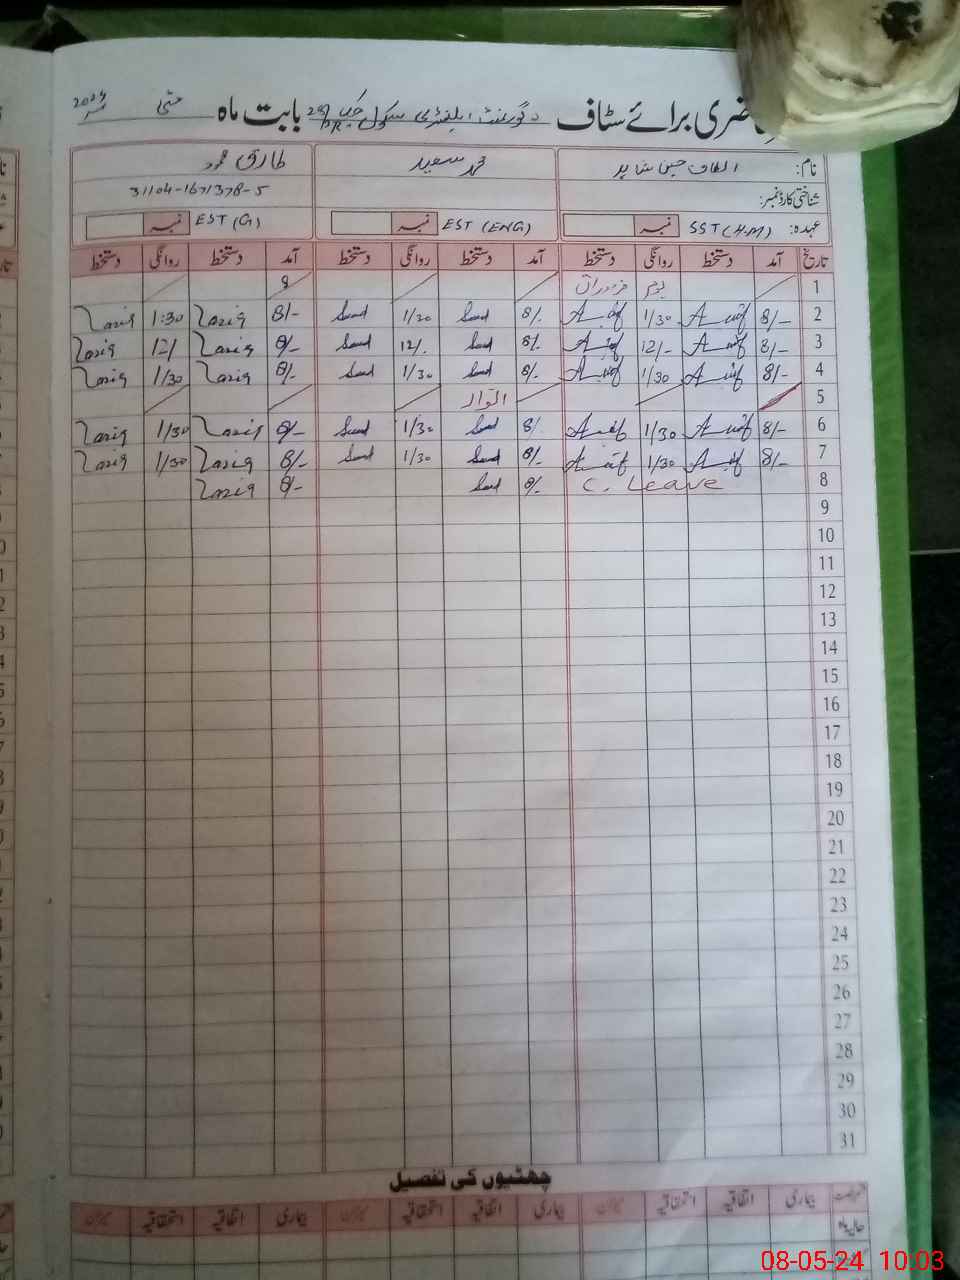 حاضری برائے سٹاف گورنمنٹ ایلیمنٹری سکول بابت ماہ مئی 2024
نام: الطاف حسین شاہد محمد سعید طارق محمود
شناختی کارڈ نمبر: 31104-1671378-5
عہدہ: SST (H.M) نمبر EST (ENG) نمبر EST (G) نمبر
تاریخ آمد دستخط روانگی دستخط آمد دستخط روانگی دستخط آمد دستخط روانگی دستخط
1 یوم مزدوراں
2 8/- 1/30 8/- Saeed 1/30 Saeed 8/- Tariq 1:30 Tariq
3 8/- 12/- 8/- Saeed 12/- Saeed 8/- Tariq 12/ Tariq
4 8/- 1/30 8/- Saeed 1/30 Saeed 8/- Tariq 1/30 Tariq
5 اتوار
6 8/- 1/30 8/- Saeed 1/30 Saeed 8/- Tariq 1/30 Tariq
7 8/- 1/30 8/- Saeed 1/30 Saeed 8/- Tariq 1/30 Tariq
8 C. Leave 8/- Saeed 8/- Tariq
9
10
11
12
13
14
15
16
17
18
19
20
21
22
23
24
25
26
27
28
29
30
31
چھٹیوں کی تفصیل
بیماری اتفاقیہ استحقاقیہ میزان بیماری اتفاقیہ استحقاقیہ میزان بیماری اتفاقیہ استحقاقیہ میزان
حالیہ ماہ
08-05-24 10:03